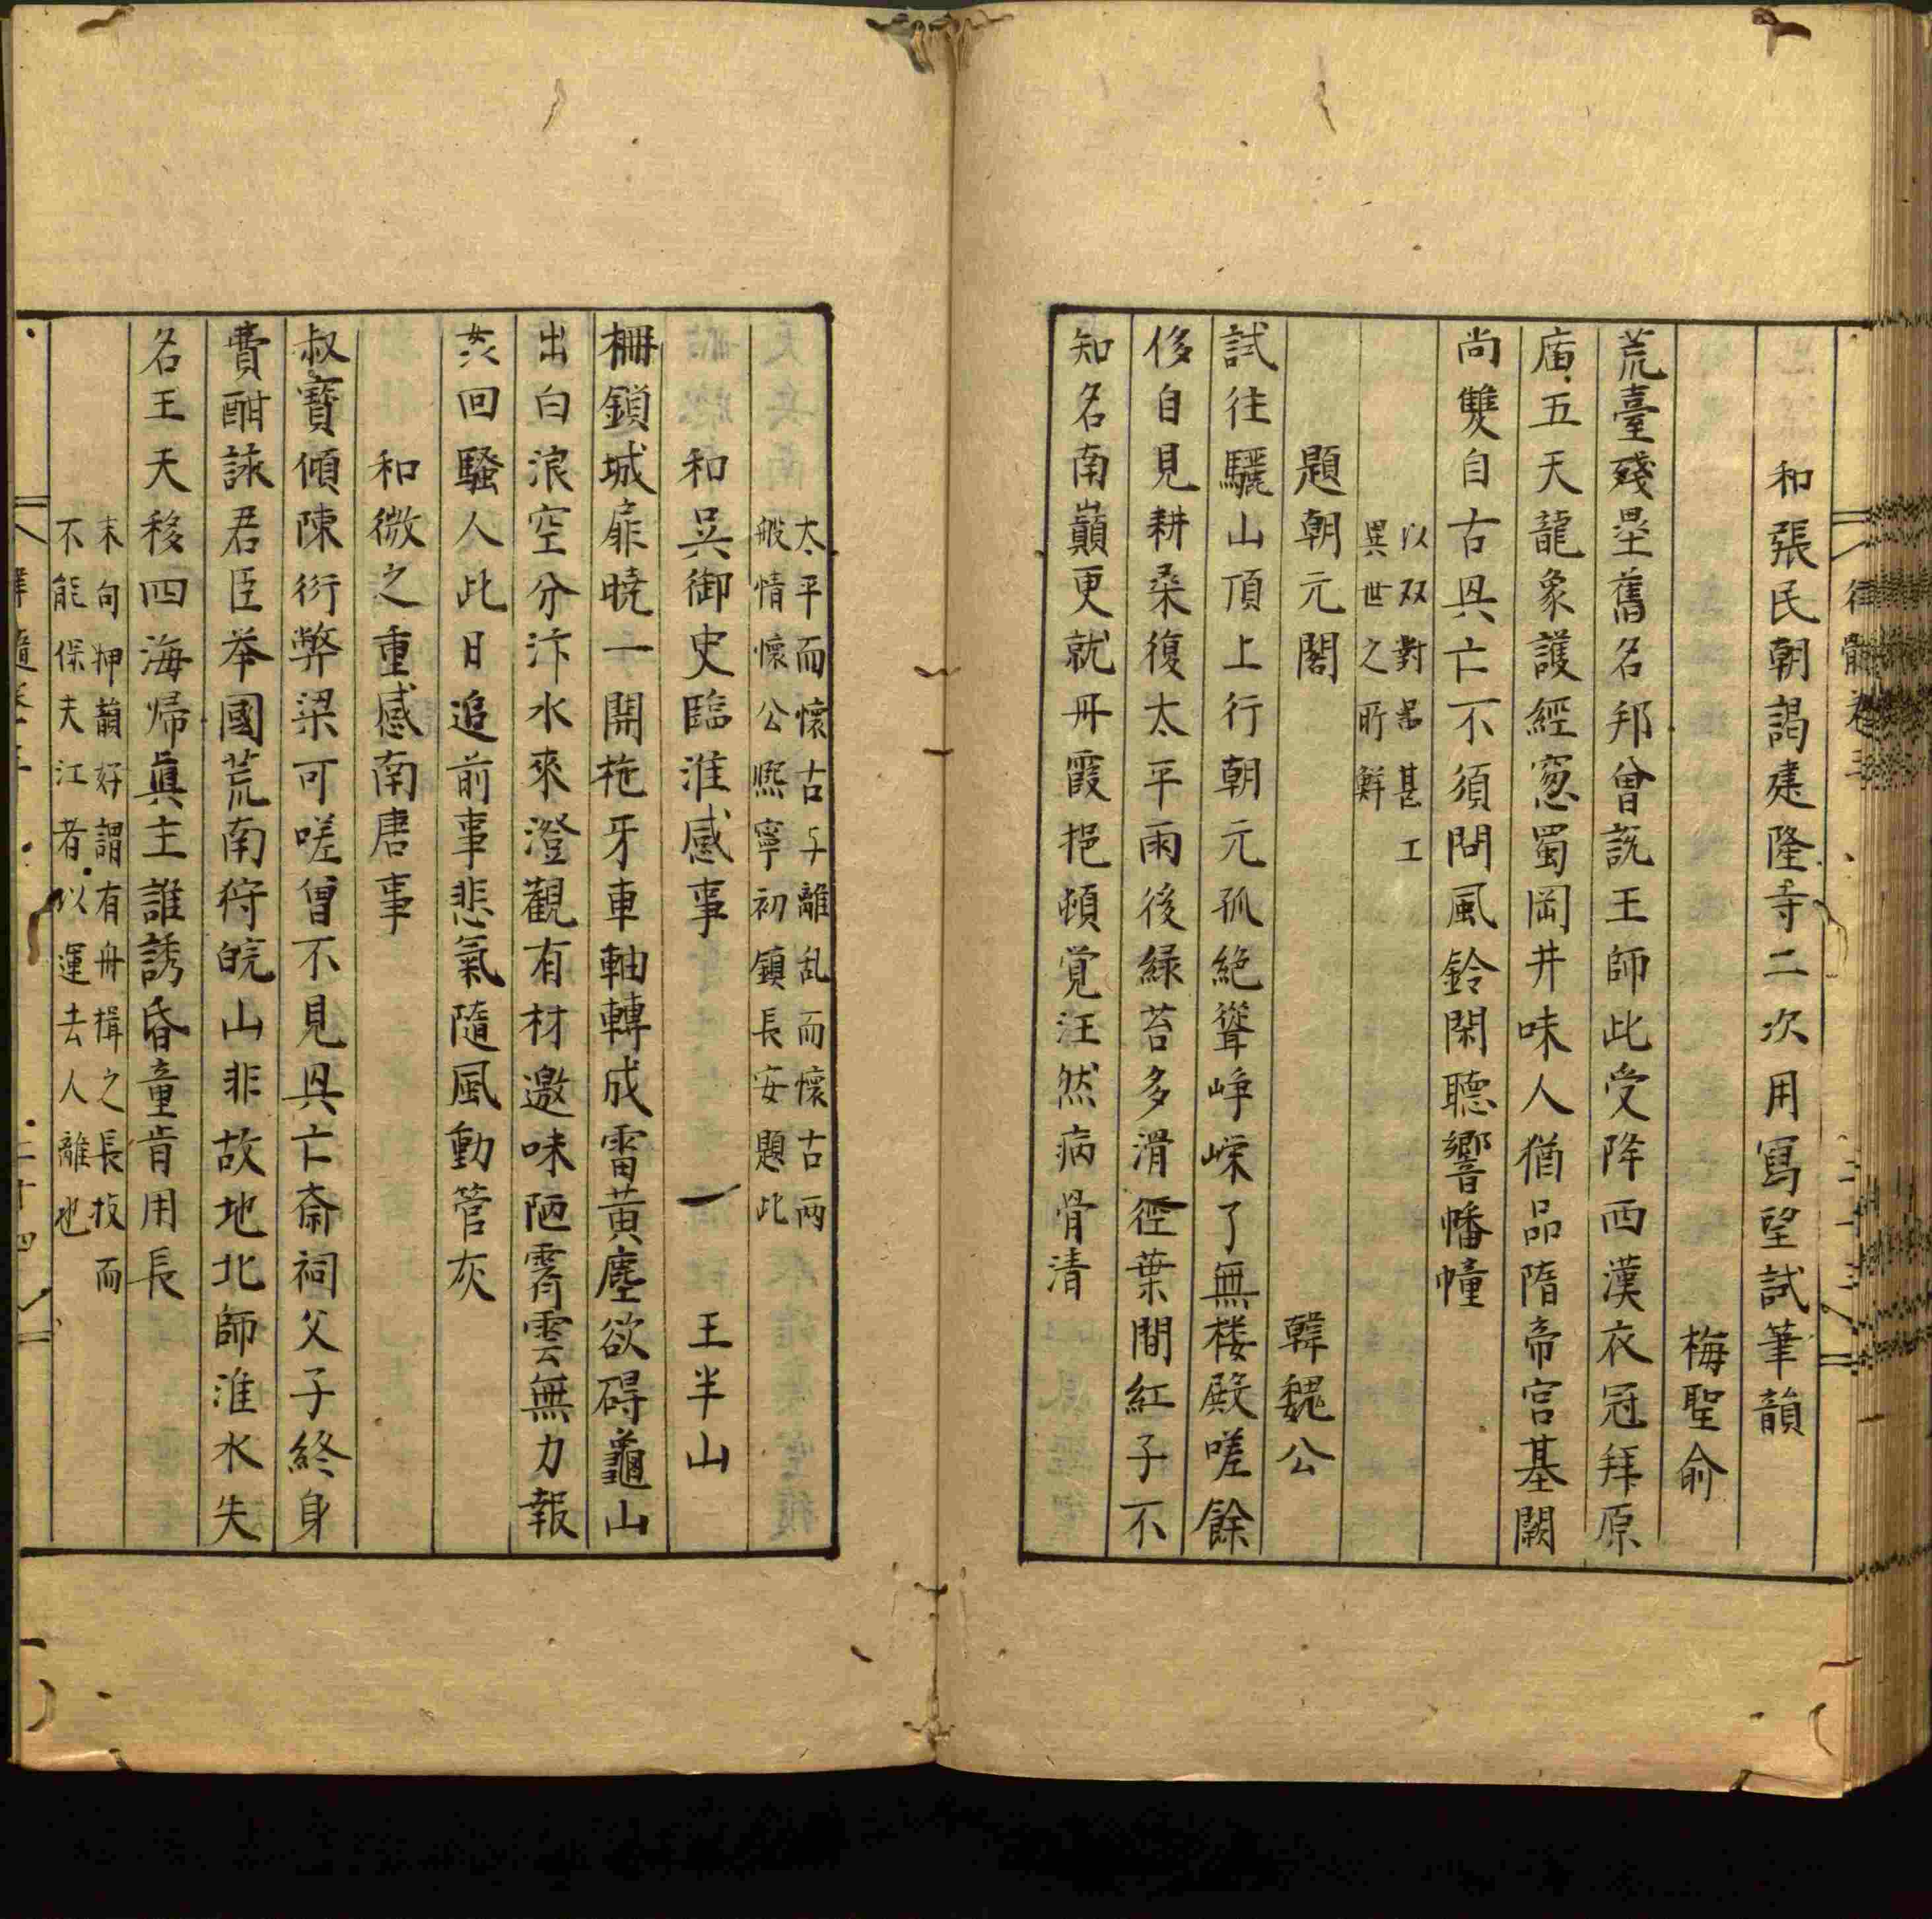 和張民朝謁建隆寺二次用寫望試筆韻
梅聖俞
荒臺殘壘舊名邦曾説王師此受降西漢衣冠拜原
庿五天龍象護經窓蜀岡井味人猶品隋帝宫基闕
尚雙自古㒷亡不須問風鈴閑聽響幡幢
以双對㠯甚工
異世之所鮮
題朝元閣
韓魏公
試往驪山頂上行朝元孤絶聳崢嶸了無楼殿嗟餘
侈自見耕桒復太平雨後緑苔多滑徑葉間紅子不
知名南巔更就丹霞挹頓覚汪然病骨清
太平而懷古与離乱而懷古两
般情懷公熈寧初鎮長安題此
和呉御史臨淮感事
王半山
柵鎖城扉暁一開拖牙車軸轉成雷黄塵欲碍龜山
出白浪空分汴水來澄觀有材邀味陋霽雲無力報
㚣回騷人此日追前事悲氣隨風動管灰
和微之重感南唐事
叔寳傾陳衍弊梁可嗟曾不見㒷亡斎祠父子終身
費酣詠君臣举國荒南狩皖山非故地北師淮水失
名王天移四海帰眞主誰誘昏童肯用長
末句押韻好謂有舟楫之長技而
不能保夫江者以運去人離也
律髓卷之三
二十三
二十四